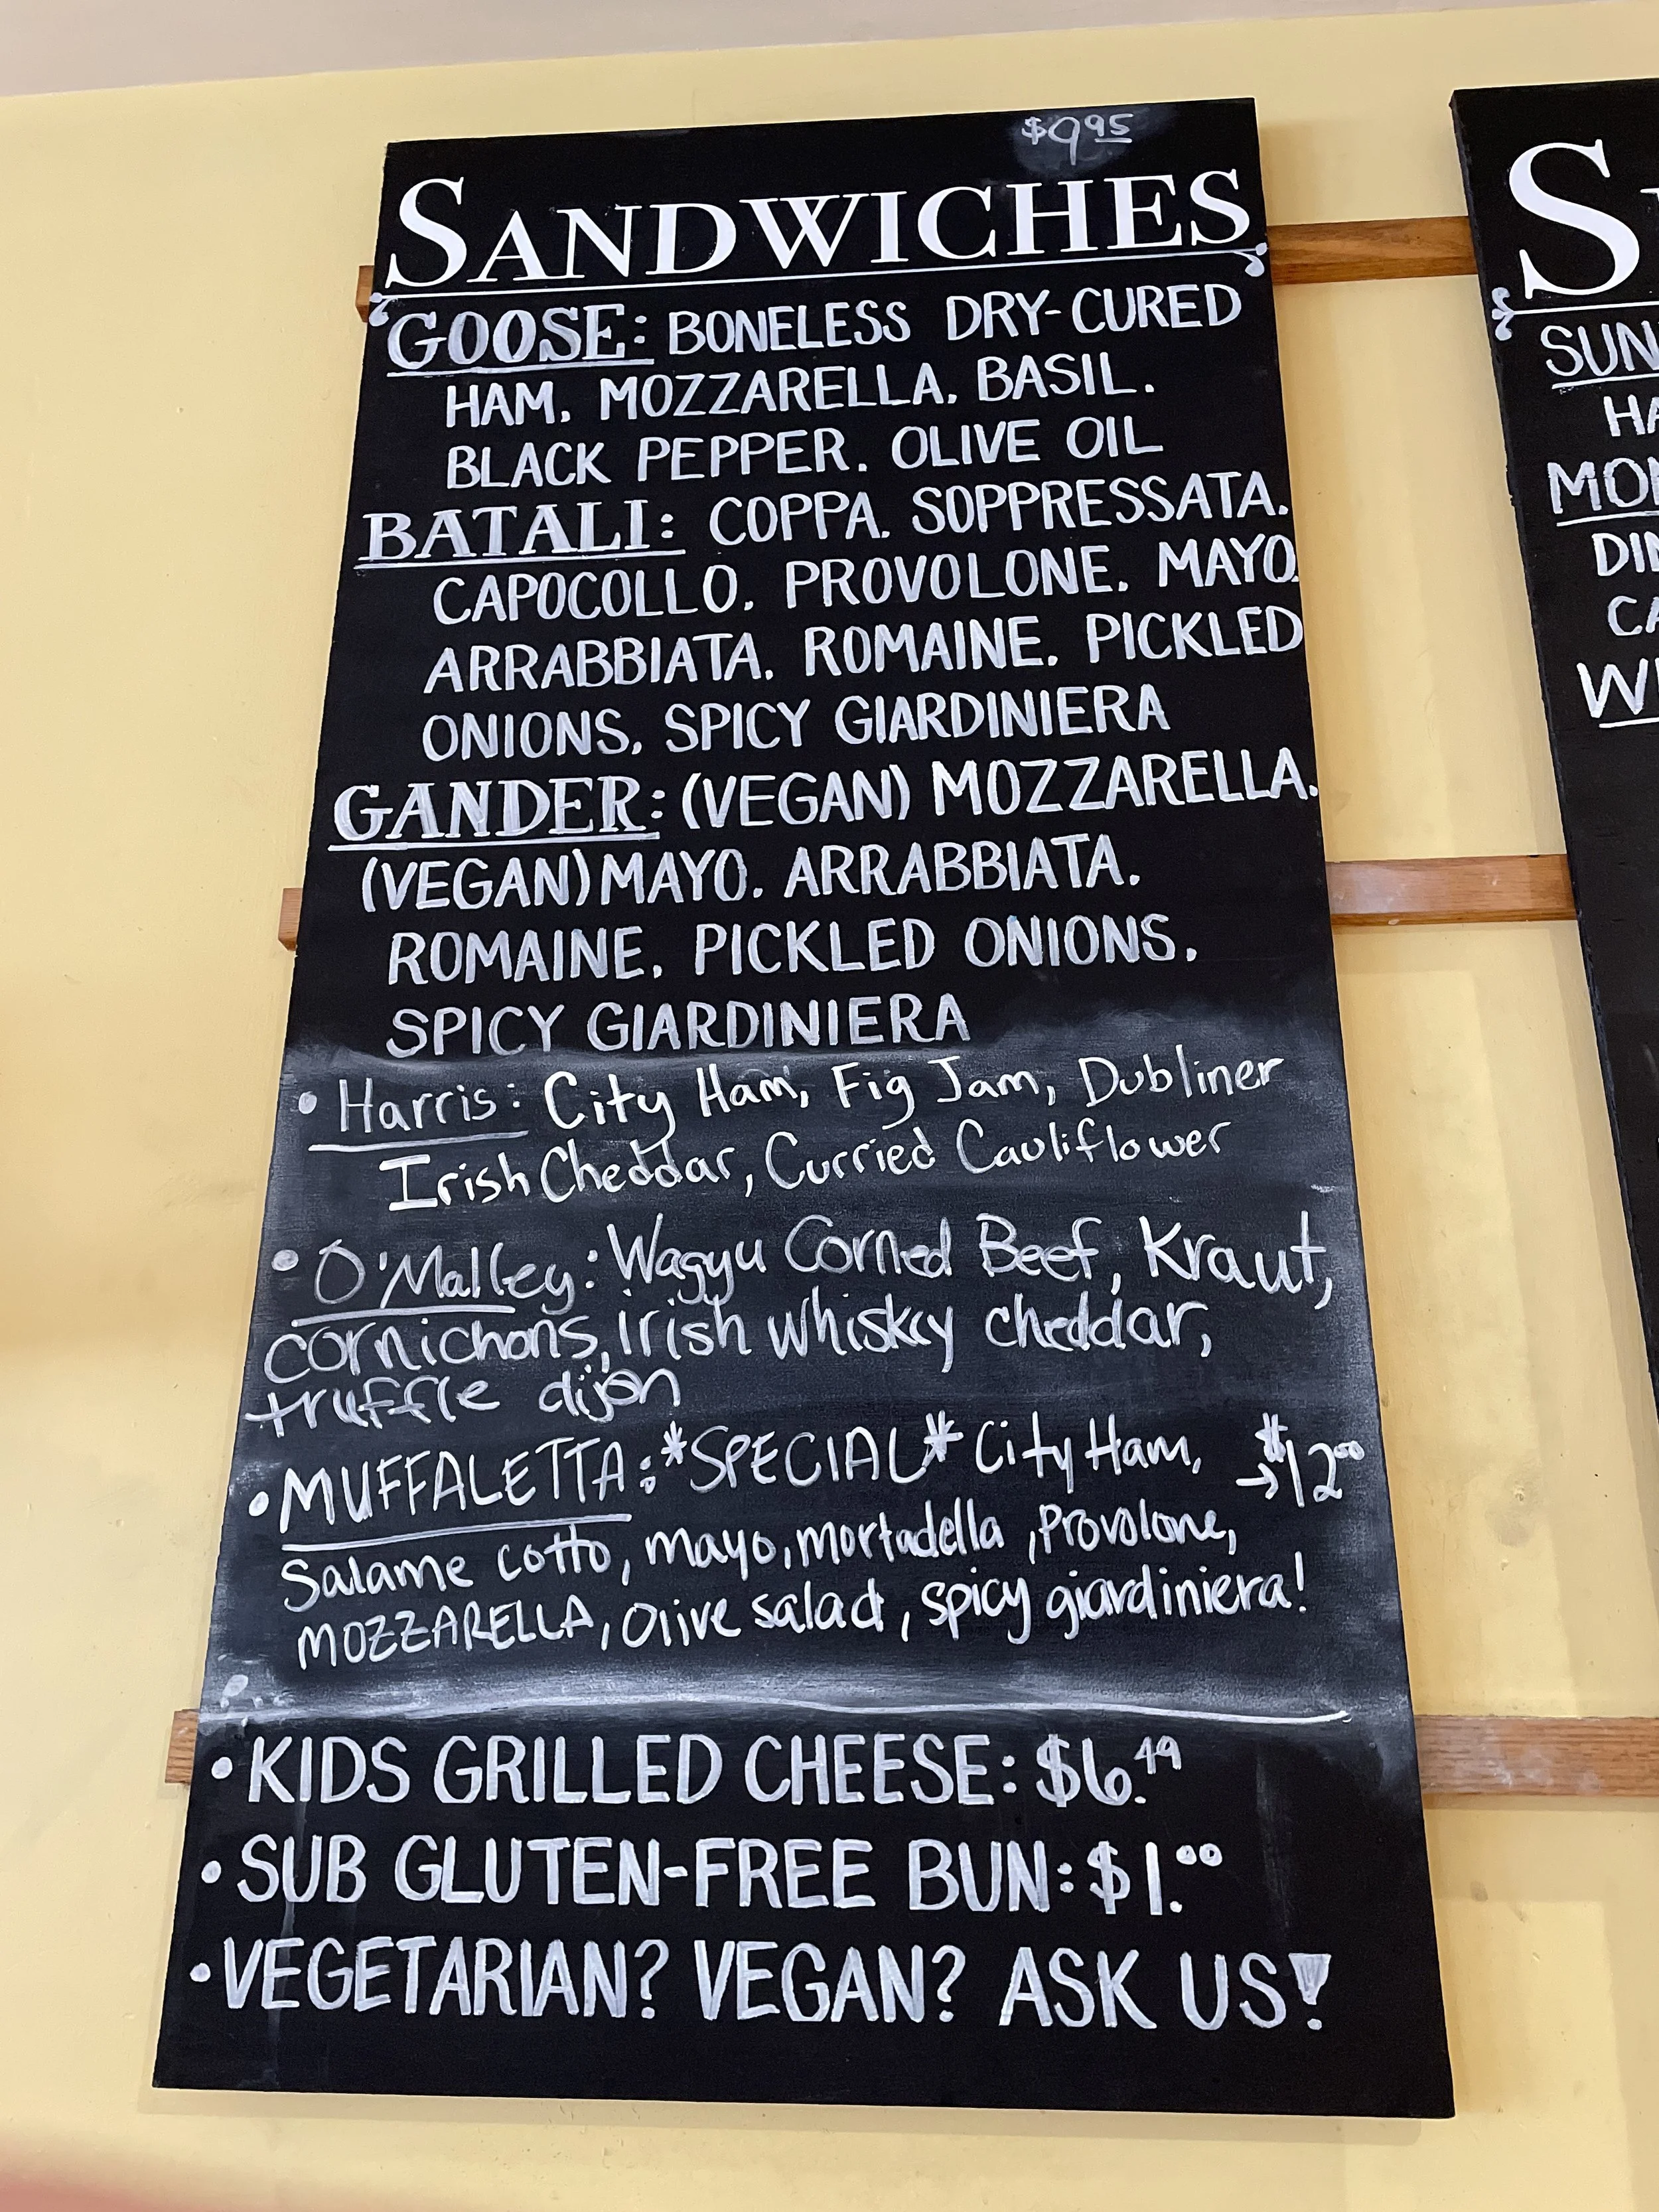 $9.95
SANDWICHES
GOOSE: BONELESS DRY-CURED
HAM. MOZZARELLA. BASIL.
BLACK PEPPER. OLIVE OIL
BATALI: COPPA. SOPPRESSATA.
CAPOCOLLO. PROVOLONE. MAYO.
ARRABBIATA. ROMAINE. PICKLED
ONIONS. SPICY GIARDINIERA
GANDER: (VEGAN) MOZZARELLA.
(VEGAN) MAYO. ARRABBIATA.
ROMAINE. PICKLED ONIONS.
SPICY GIARDINIERA
• Harris: City Ham, Fig Jam, Dubliner
Irish Cheddar, Curried Cauliflower
• O'Malley: Wagyu Corned Beef, Kraut,
cornichons, irish whiskey cheddar,
truffle dijon
• MUFFALETTA: *SPECIAL* City Ham, →$12.00
Salame cotto, mayo, mortadella, Provolone,
MOZZARELLA, Olive salad, spicy giardiniera!
• KIDS GRILLED CHEESE: $6.49
• SUB GLUTEN-FREE BUN: $1.00
• VEGETARIAN? VEGAN? ASK US!
SUN
HA
MON
DIN
CA